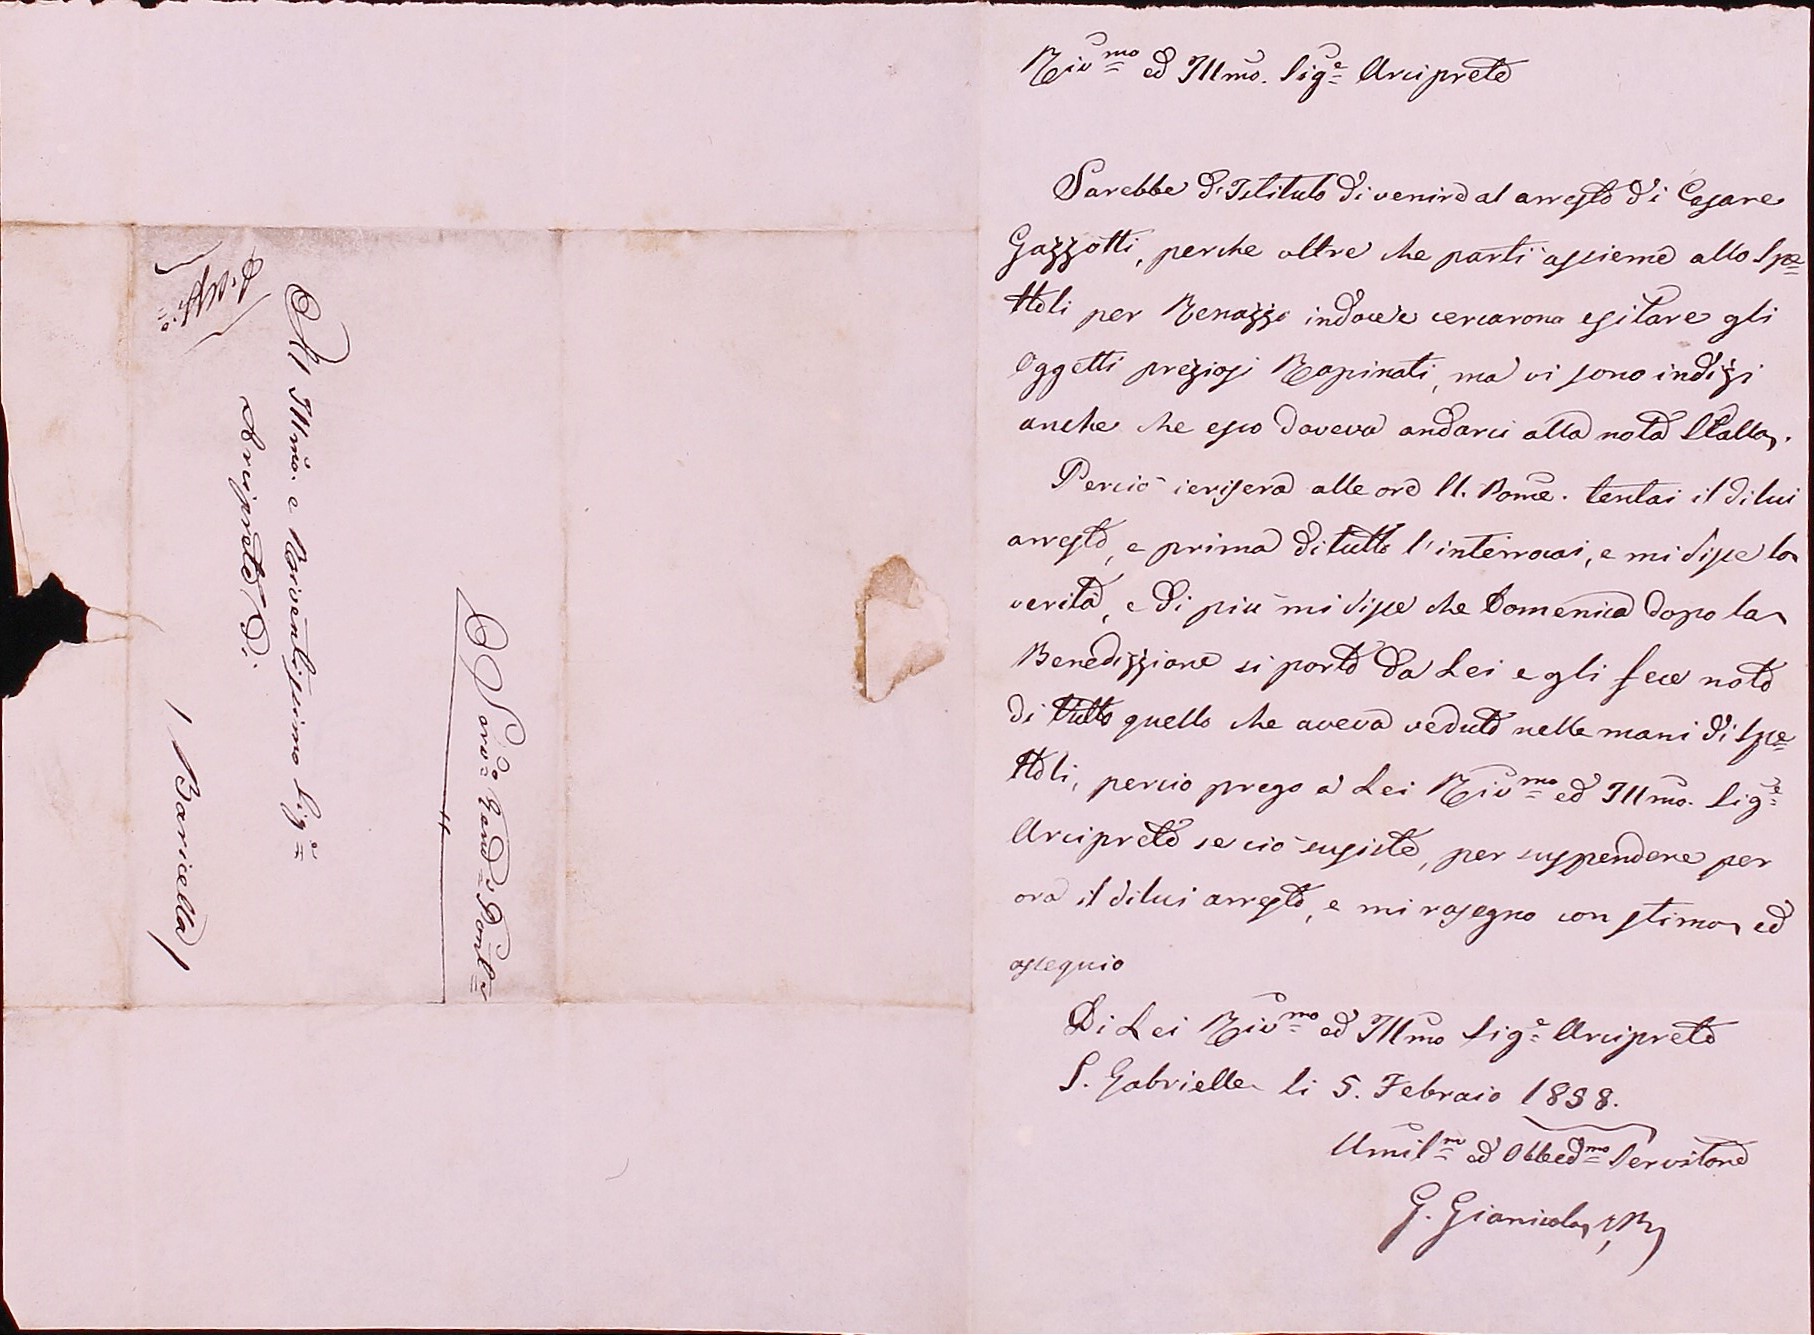 Riv.mo ed Illmo. Sig.e Arciprete
Sarebbe d'Istituto di venire al arresto di Cesare
Gazzotti, perche oltre che parti assieme allo Spe=
ttoli per Renazzo indove cercarono esitare gli
Oggetti preziosi Rapinati, ma vi sono indizi
anche che esso doveva andarci alla nota Stalla.
Perciò jerisera alle ore 11. Pome. tentai il di lui
arresto, e prima di tutto l'interrocai, e mi disse la
verità, e di più mi disse che Domenica dopo la
Benedizzione si portò da Lei e gli fece noto
di tutto quello che aveva veduto nelle mani di Spe=
ttoli, percio prego a Lei Riv.mo ed Illmo. Sig.e
Arciprete se ciò susiste, per suspendere per
ora il di lui arresto, e mi rasegno con stima ed
ossequio
Di Lei Riv.mo ed Illmo Sig.e Arciprete
S. Gabrielle li 5. Febraio 1858.
Umil.m ed Obbed.mo Servitore
G. Gianicola
All Illmo. e Rivientissimo Sig.e
Arciprete Di:
/ Baricella /
D'Uff.o
Serv.o Gend.a Pont.a